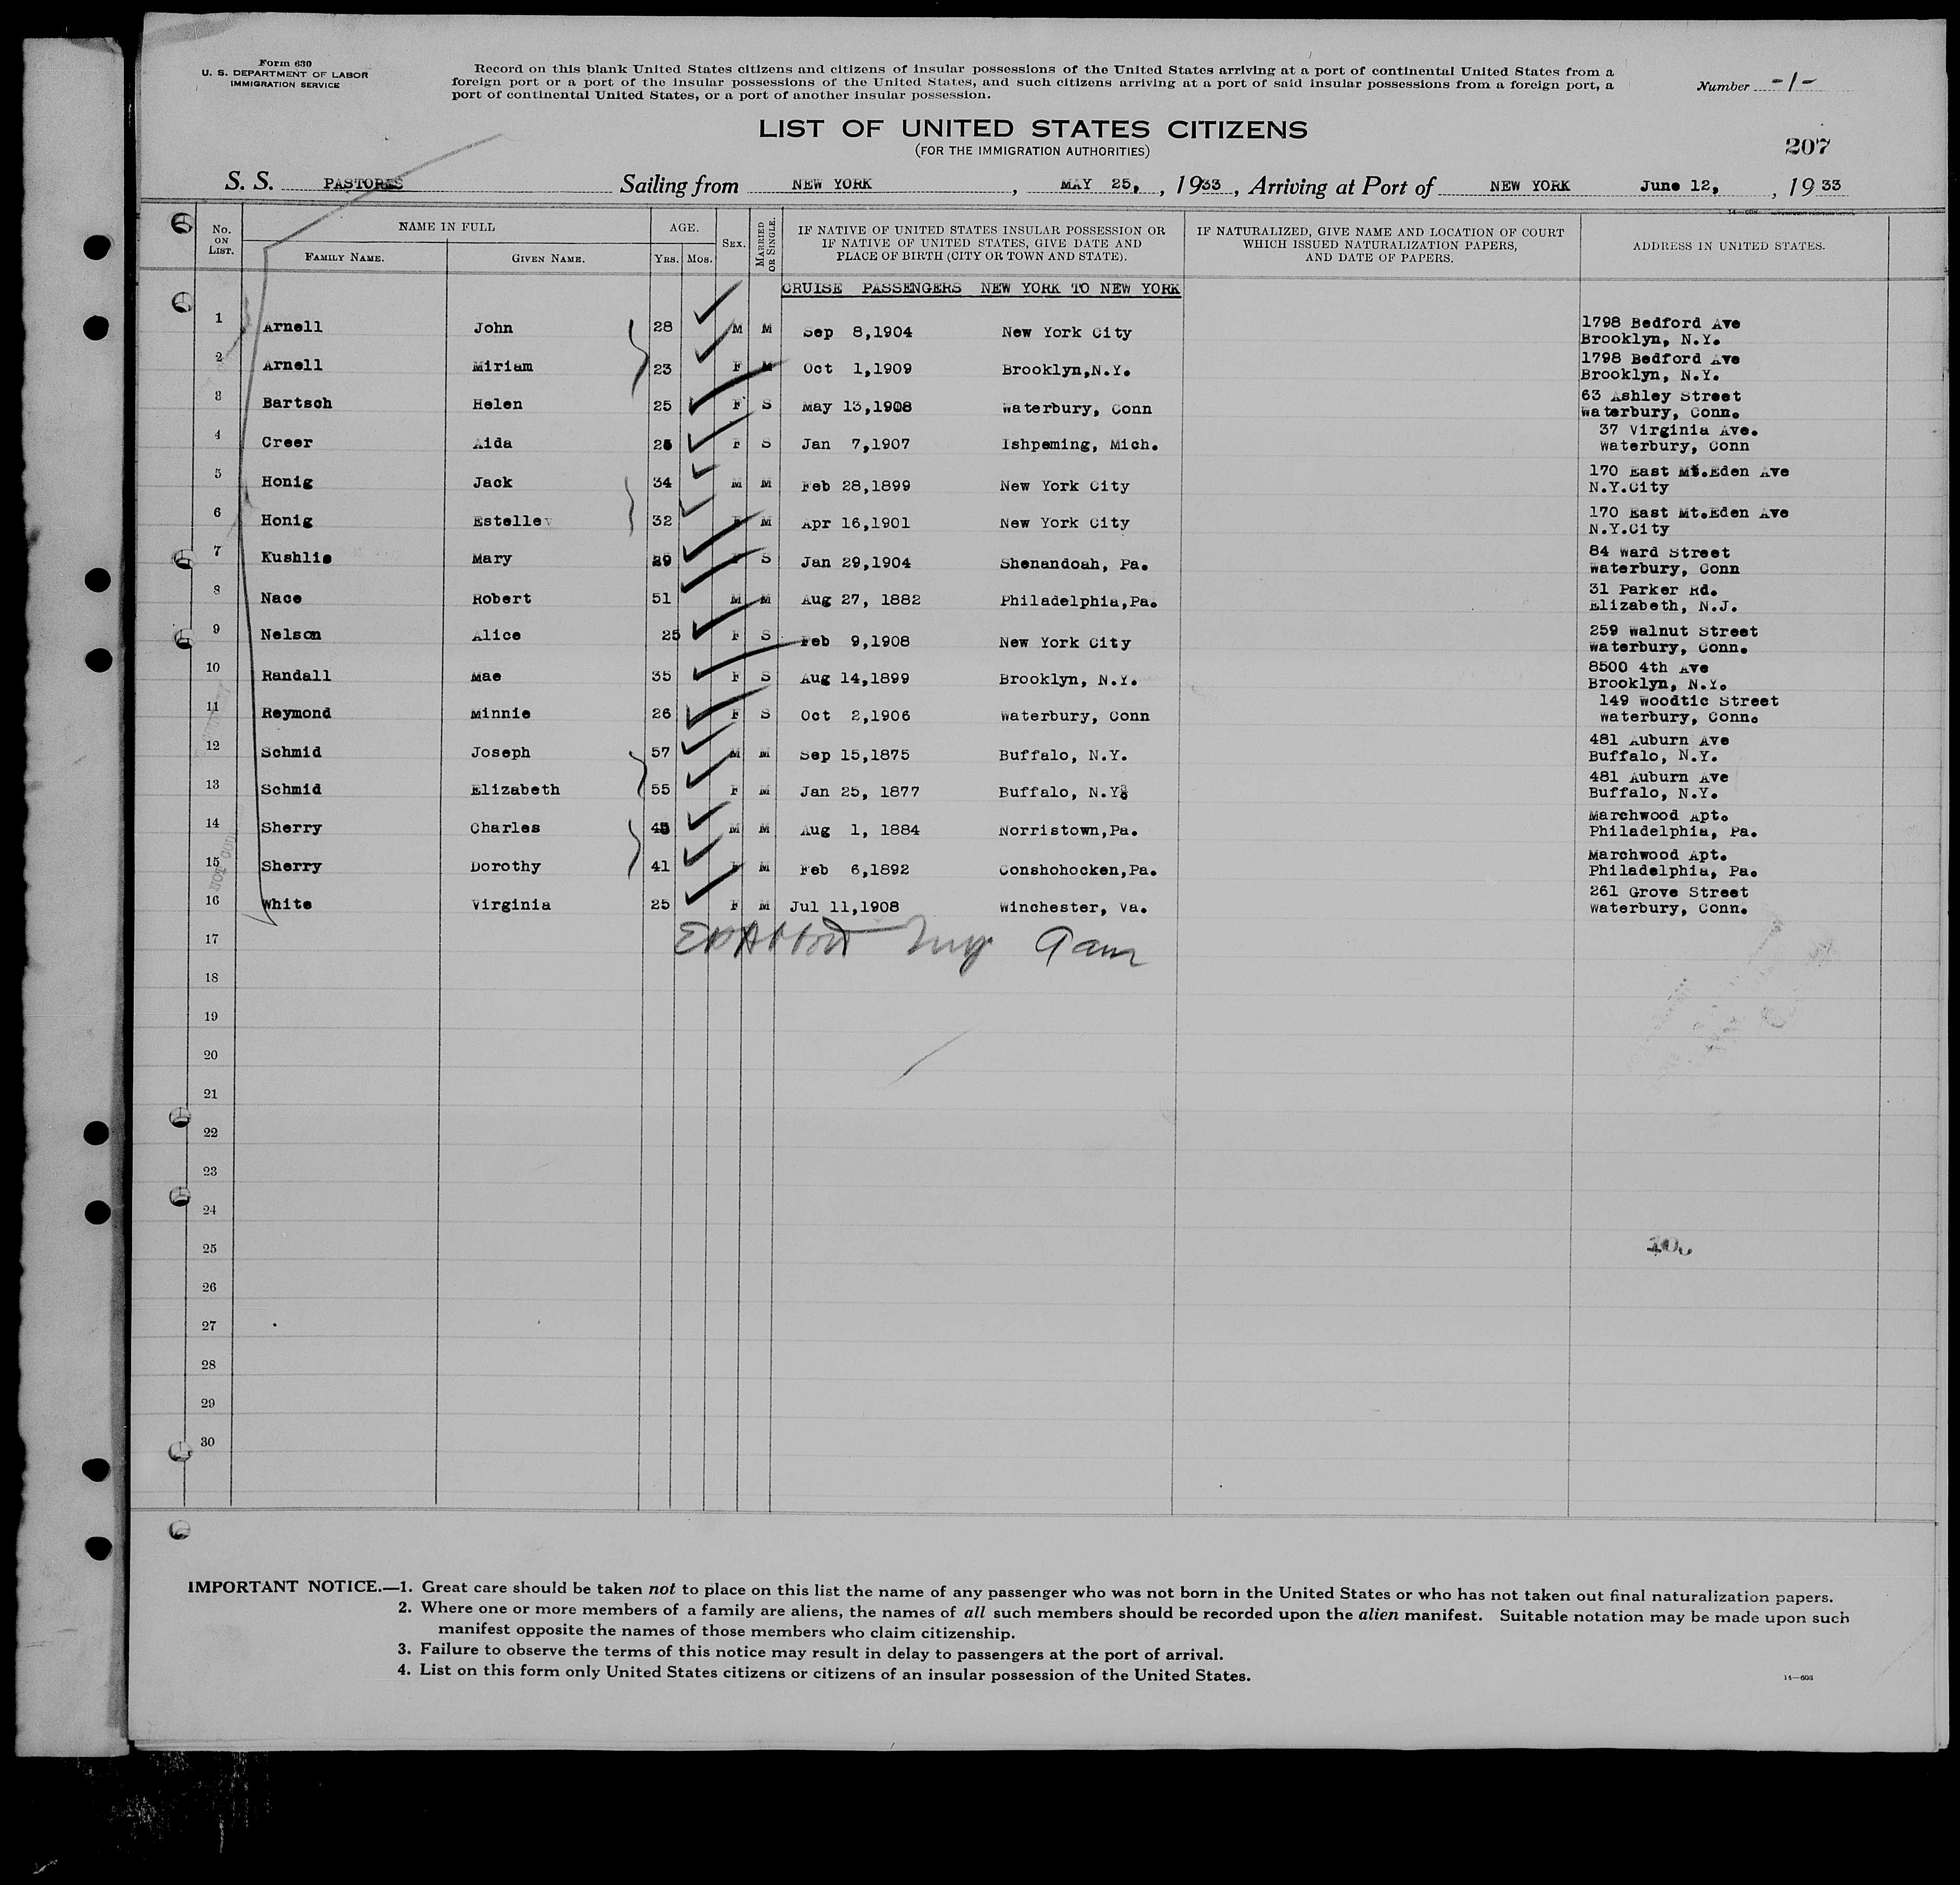 Form 630
U. S. DEPARTMENT OF LABOR
IMMIGRATION SERVICE
Record on this blank United States citizens and citizens of insular possessions of the United States arriving at a port of continental United States from a
foreign port or a port of the insular possessions of the United States, and such citizens arriving at a port of said insular possessions from a foreign port, a
port of continental United States, or a port of another insular possession.
Number -1-
LIST OF UNITED STATES CITIZENS
(FOR THE IMMIGRATION AUTHORITIES)
207
S. S. PASTORES Sailing from NEW YORK, MAY 25, , 1933, Arriving at Port of NEW YORK June 12, , 1933
14—608
No. ON LIST. NAME IN FULL AGE. SEX. MARRIED OR SINGLE. IF NATIVE OF UNITED STATES INSULAR POSSESSION OR IF NATIVE OF UNITED STATES, GIVE DATE AND PLACE OF BIRTH (CITY OR TOWN AND STATE). IF NATURALIZED, GIVE NAME AND LOCATION OF COURT WHICH ISSUED NATURALIZATION PAPERS, AND DATE OF PAPERS. ADDRESS IN UNITED STATES.
FAMILY NAME. GIVEN NAME. YRS. MOS.
CRUISE PASSENGERS NEW YORK TO NEW YORK
1 Arnell John 28 M M Sep 8,1904 New York City 1798 Bedford Ave Brooklyn, N.Y.
2 Arnell Miriam 23 F M Oct 1,1909 Brooklyn,N.Y. 1798 Bedford Ave Brooklyn, N.Y.
3 Bartsch Helen 25 F S May 13,1908 Waterbury, Conn 63 Ashley Street Waterbury, Conn.
4 Creer Aida 26 F S Jan 7,1907 Ishpeming, Mich. 37 Virginia Ave. Waterbury, Conn
5 Honig Jack 34 M M Feb 28,1899 New York City 170 East Mt.Eden Ave N.Y.City
6 Honig Estelle 32 F M Apr 16,1901 New York City 170 East Mt.Eden Ave N.Y.City
7 Kushlis Mary 29 F S Jan 29,1904 Shenandoah, Pa. 84 Ward Street Waterbury, Conn
8 Nace Robert 51 M M Aug 27, 1882 Philadelphia,Pa. 31 Parker Rd. Elizabeth, N.J.
9 Nelson Alice 25 F S Feb 9,1908 New York City 259 Walnut Street Waterbury, Conn.
10 Randall Mae 35 F S Aug 14,1899 Brooklyn, N.Y. 8500 4th Ave Brooklyn, N.Y.
11 Reymond Minnie 26 F S Oct 2,1906 Waterbury, Conn 149 Woodtic Street Waterbury, Conn.
12 Schmid Joseph 57 M M Sep 15,1875 Buffalo, N.Y. 481 Auburn Ave Buffalo, N.Y.
13 Schmid Elizabeth 55 F M Jan 25, 1877 Buffalo, N.Y. 481 Auburn Ave Buffalo, N.Y.
14 Sherry Charles M M Aug 1, 1884 Norristown,Pa. Marchwood Apt. Philadelphia, Pa.
15 Sherry Dorothy 41 F M Feb 6,1892 Conshohocken,Pa. Marchwood Apt. Philadelphia, Pa.
16 White Virginia 25 F M Jul 11,1908 Winchester, Va. 261 Grove Street Waterbury, Conn.
17
18
19
20
21
22
23
24
25
26
27
28
29
30
IMPORTANT NOTICE.—1. Great care should be taken not to place on this list the name of any passenger who was not born in the United States or who has not taken out final naturalization papers.
2. Where one or more members of a family are aliens, the names of all such members should be recorded upon the alien manifest. Suitable notation may be made upon such
manifest opposite the names of those members who claim citizenship.
3. Failure to observe the terms of this notice may result in delay to passengers at the port of arrival.
4. List on this form only United States citizens or citizens of an insular possession of the United States.
14—608